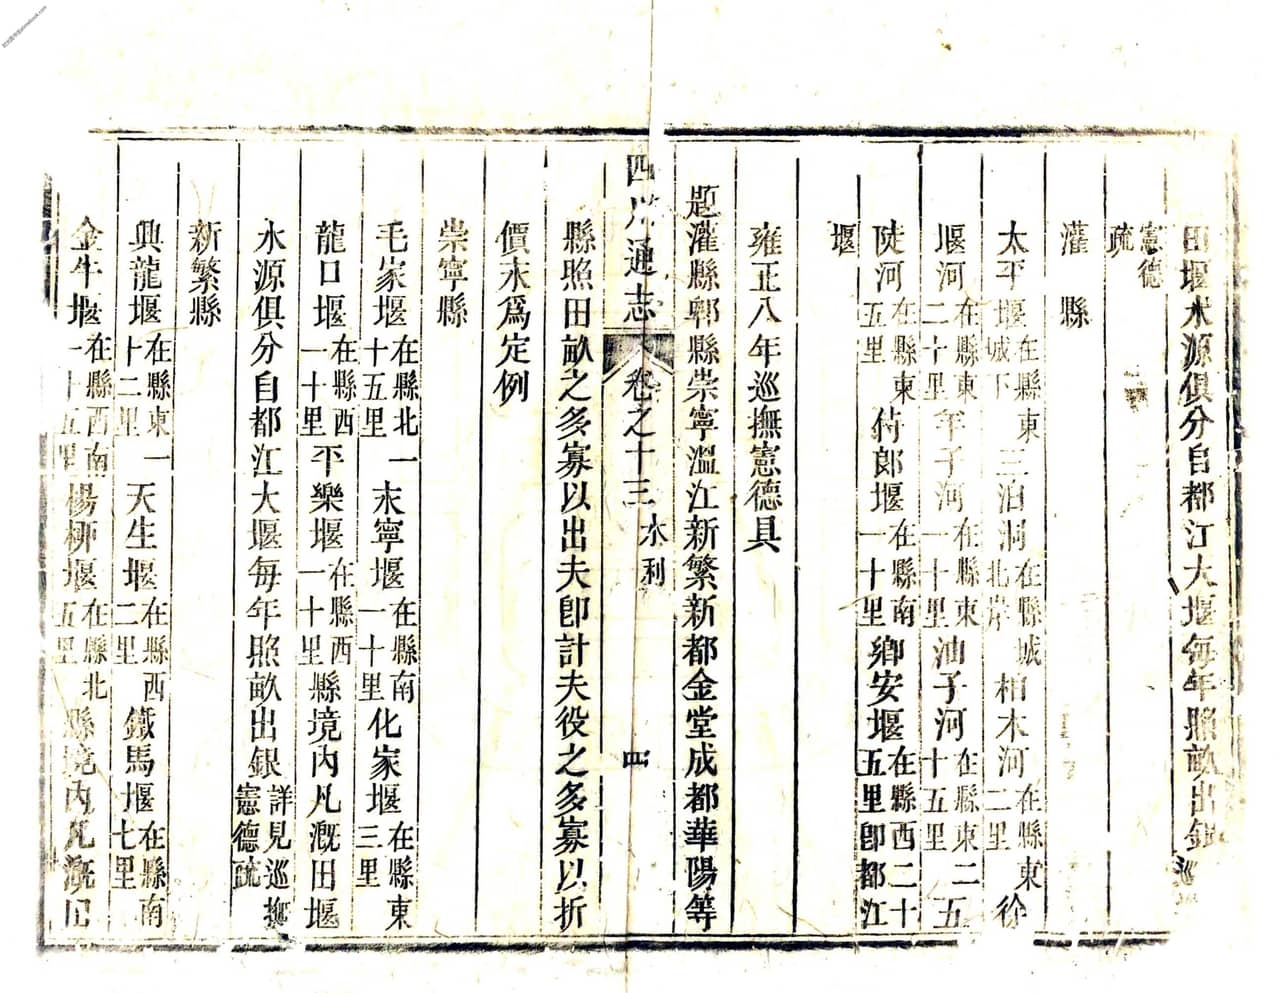 田堰水源俱分自都江大堰每年照畝出銀巡
憲德
疏
灌縣
太平堰在縣東城下三泊洞在縣城北岸柏木河在縣東二里徐
堰河在縣東二十里年子河在縣東一十里油子河在縣東二十五里五
陡河在縣東五里侍郎堰在縣南一十里鄉安堰在縣西二十五里卽都江
堰
雍正八年巡撫憲德具
題灌縣郫縣崇寧溫江新繁新都金堂成都華陽等
四川通志 卷之十三 水利 四
縣照田畝之多寡以出夫卽計夫役之多寡以折
價永爲定例
崇寧縣
毛家堰在縣北一十五里永寧堰在縣南一十里化家堰在縣東三里
龍口堰在縣西一十里平樂堰在縣西一十里縣境內凡漑田堰
水源俱分自都江大堰每年照畝出銀詳見巡撫憲德疏
新繁縣
興龍堰在縣東一十二里天生堰在縣西二里鐵馬堰在縣南七里
金牛堰在縣西南一十五里楊柳堰在縣北五里縣境內凡漑田